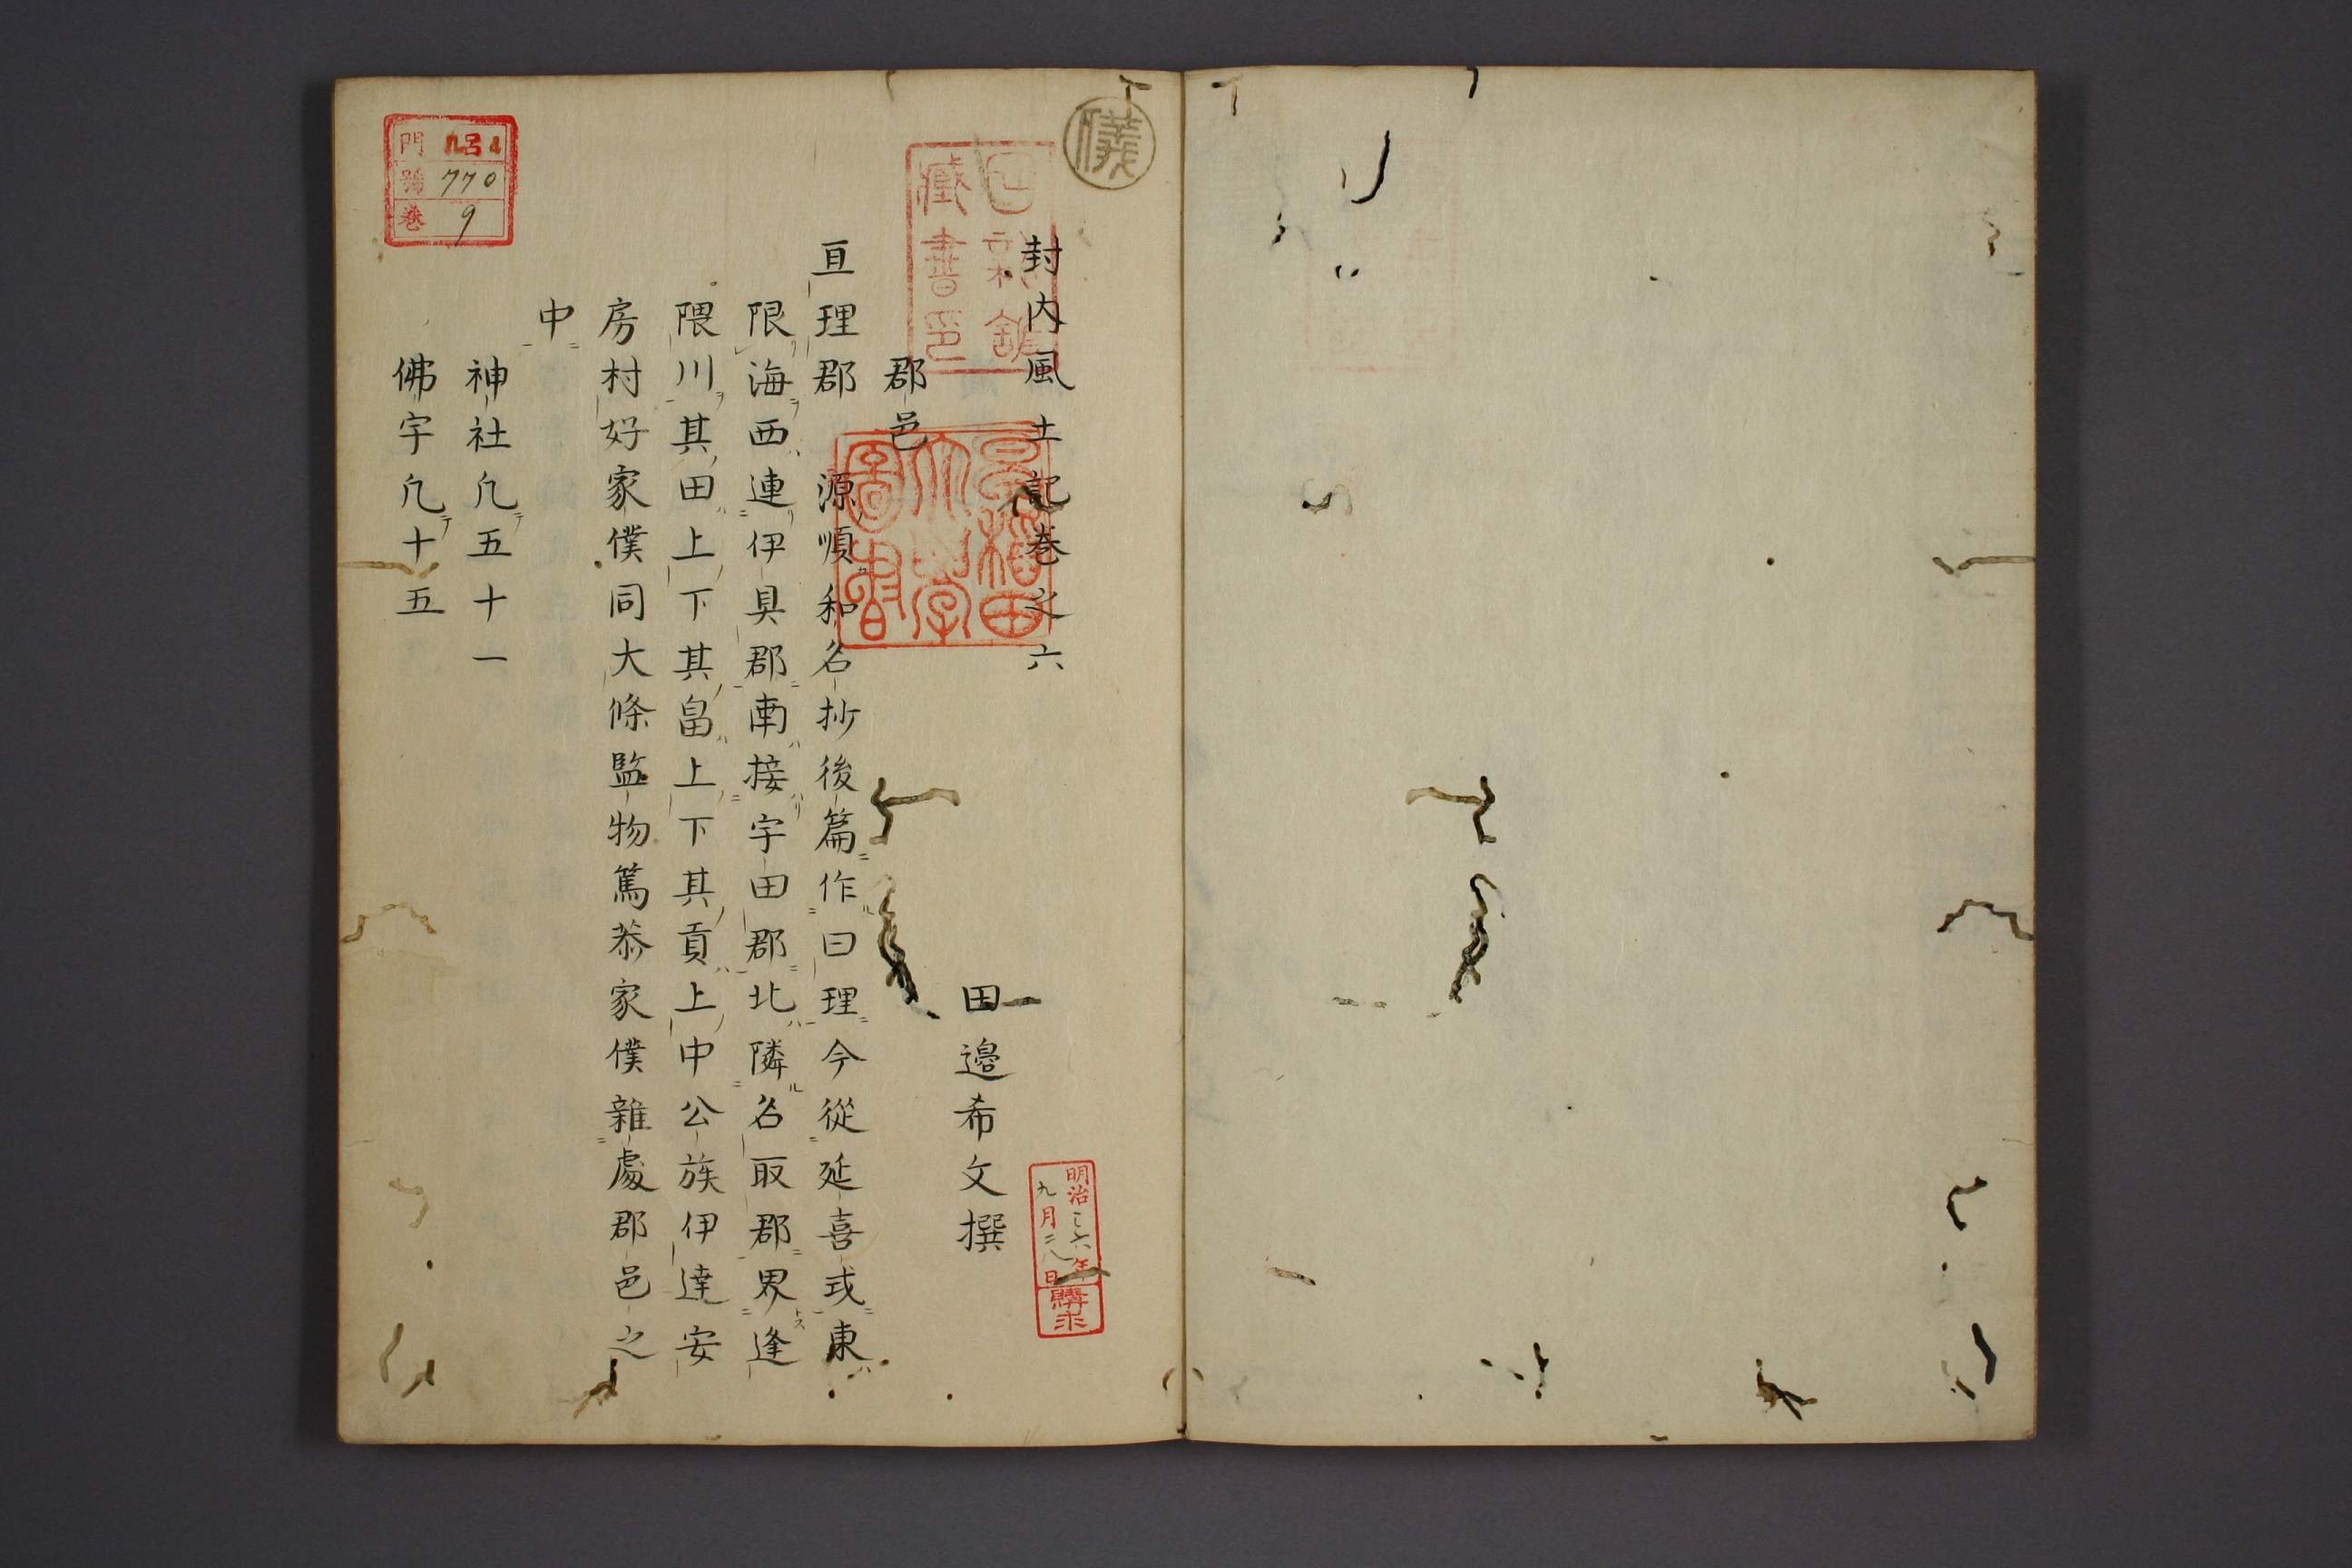 封内風土記巻之六
田邉希文撰
郡邑
亘理郡 源順和名抄後篇作曰理今從延喜式東
限海西連伊具郡南接宇田郡北隣名取郡界逢
隈川其田上下其畠上下其貢上中公族伊達安
房村好家僕同大條監物篤恭家僕雜處郡邑之
中
神社凢五十一
佛宇凢十五
儀
藏書印
早稲田大學圖書
明治三六年
九月二八日
購求
門 呂4
號 770
巻 9